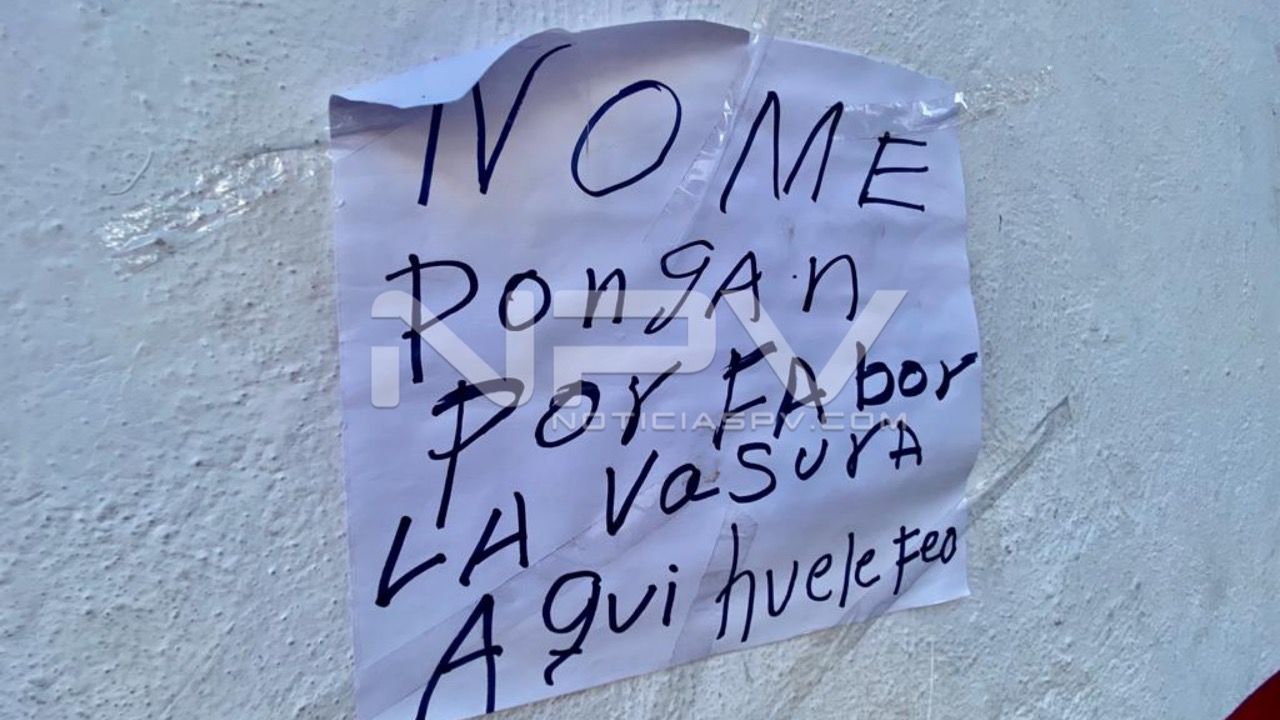 NO ME
PongAn
Por FAbor
LA VasurA
Aqui huele Feo
NPV
NOTICIASPV.COM